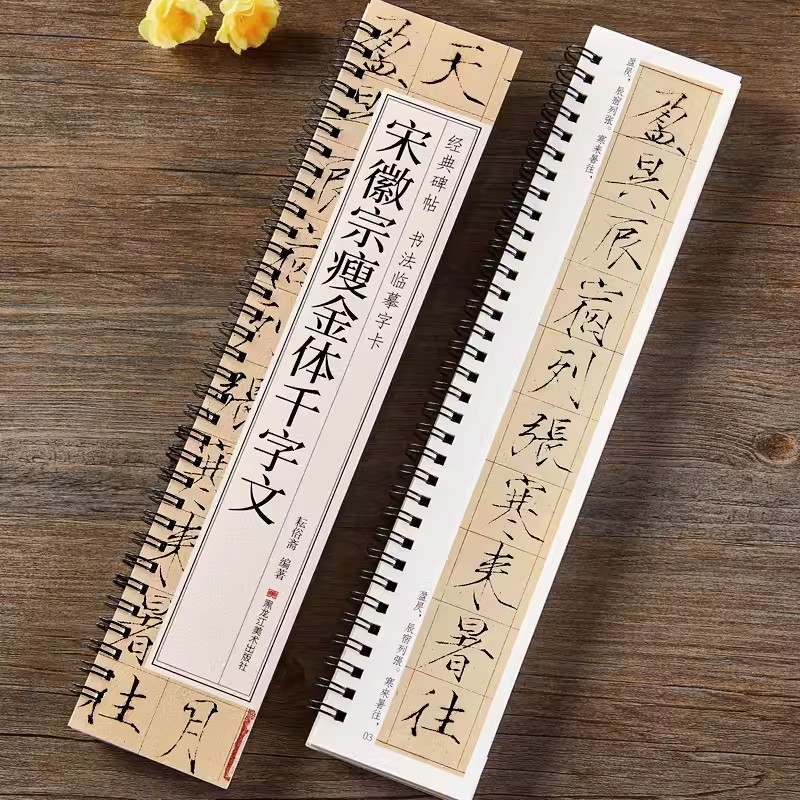 经典碑帖 书法临摹字卡
宋徽宗瘦金体千字文
耘俗斋 编著
黑龙江美术出版社
天
盈昃辰宿列張寒来暑往
月
盈昃，辰宿列张。寒来暑往，
盈昃辰宿列張寒来暑往
盈昃，辰宿列张。寒来暑往，
03